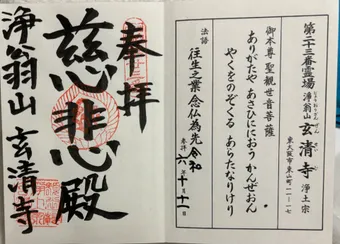 第二十三番霊場 浄翁山 玄清寺 浄土宗
じょうおうざん げんせいじ
東大阪市東山町一一-一七
御本尊 聖観世音菩薩
ありがたや あさひににおう かんぜおん
やくをのぞくる あらたなりけり
法語
往生之業 念仏為先
参拝 令和 六年十月十二日
奉拝
慈悲殿
浄翁山 玄清寺